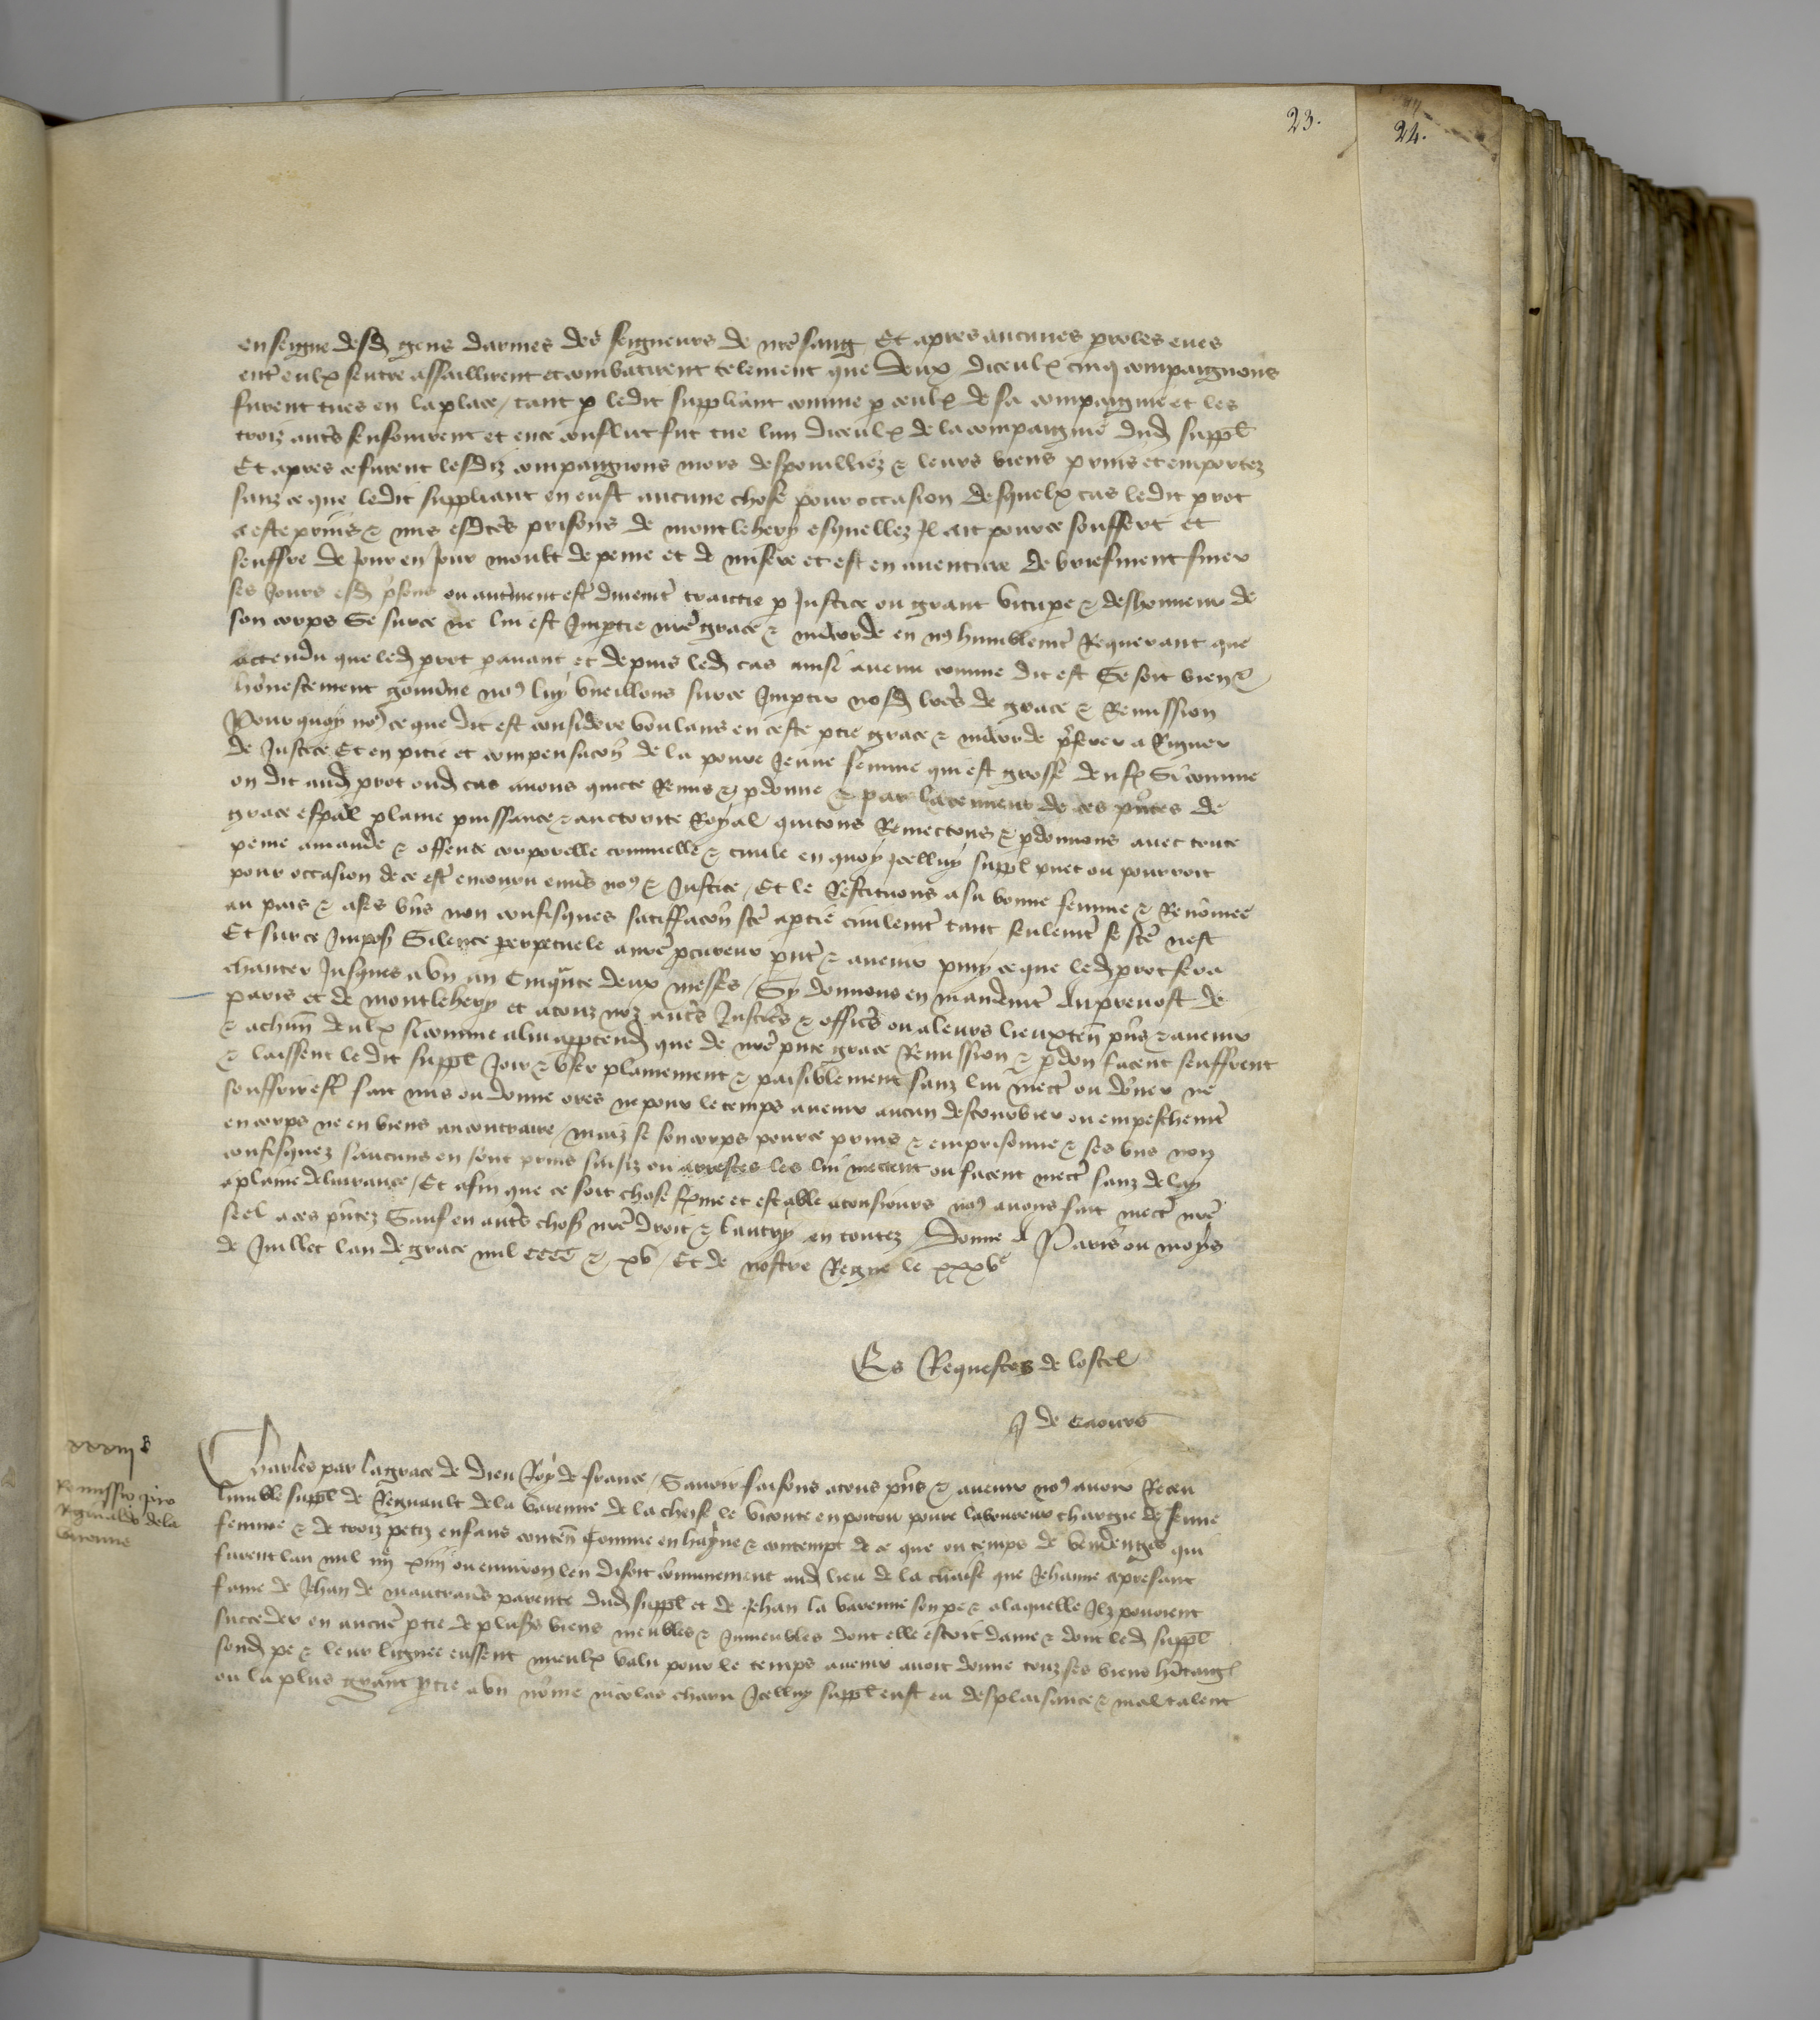 23.
24.
enseigne desd gens darmes des seigneurs de nre sang Et apres aucunes proles eues
entr eulx sentre assaillirent et combatirent telement que deux diceulx cinq compaignons
furent tues en la place / tant p ledit suppliant comme p ceulx de sa compaignie et les
troiz autrs senfouirent et en ce conflict fut tue lun diceulx de la compaignie dud suppl
Et apres ce furent lesdiz compaignons mors despouilliez & leurs biens prins et emportez
sanz ce que ledit suppliant en eust aucune chose pour occasion desquelx cas ledit prot
a este prins & mis esdctes prisons de montlehery esquellez Il ait pource souffert et
seuffre de Jour en Jour moult de peine et de misere et est en aventure de briefment finer
ses Jours esd prisons ou autrement estr diuement traictie p Justice ou grant vitupe & deshonneur de
son corps Se surce ne lui est Imptie nre grace & micorde en nous humblemt Requerant que
actendu que led prot pavant et depuis led cas ainsi avenu comme dit est Se soit bien &
honnestement gouverne nous luy vueillons surce Imptir nosd lres de grace & Remission
Pourquoy nous ce que dit est considere voulans en ceste ptie grace & micorde pferer a Rigueur
de Justice Et en pitie et compensacon de la povre Jeune femme qui est grosse denft Si comme
on dit aud prot oud cas avons quicte Remis & pdonne & par la teneur de ces pntes de
grace espal plaine puissance & auctorite Royal quitons Remectons & pdonnons avec toute
peine amande & offense corporelle criminelle & civile en quoy Icelluy suppl puet ou pourroit
pour occasion de ce estr encouru envrs nous & Justice / Et le Restituons a sa bonne femme & Renomee
au pais & a ses bns non confisques satiffacon fcte a ptie civilemt tant seulemt se fcte nest
Et surce Imposs Silence perpetuele a nre pcureur pnt & avenir pmy ce que led prot fera
chanter Jusques a un an Cinqnte deux messes / Sy donnons en mandemt Au prevost de
paris et de montlehery et a touz noz autrs Justicrs & officrs ou a leurs lieuxten pns & avenir
& a chun deulx si comme a lui apptend que de nre pnte grace Remission & pdon facent seuffrent
& laissent ledit suppl Joir & user plainement & paisiblement sanz lui mectr ou donner ne
souffrir estr fait mis ou donne ores ne pour le temps avenir aucun destourbier ou empeschemt
en corps ne en biens au contraire / maiz se son corps pource prins & emprisonne & ses bns non
confisquez saucuns en sont prins saisiz ou arrestes les lui mectent ou facent mectr sanz delay
a plaine delivrance / Et afin que ce soit chose ferme et estable a tousiours nous avons fait mectr nre
seel a ces pntez Sauf en autrs choses nre droit & lautruy en toutez / Donne A Paris ou moys
de Juillet lan de grace mil cccc & xv / Et de nostre Regne le xxxve
Es Requestes de lostel
H de Caours
xxxiii
Remissio pro
Reginaldo de la
Varenne
Charles par la grace de Dieu Roy de france / Savoir faisons a tous pns & avenir nous avoir Receu
lumble suppl de Regnault de la Varenne de la cheise le viconte en poitou povre laboureur chargie de Jeune
femme & de troiz petiz enfans conten Comme en hayne & contempt de ce que ou temps de vendenges qui
furent lan mil iiiic xiiii ou environ len disoit communement aud lieu de la chaise que Jehanne apresant
fame de Jehan de mautravs parente dud suppl et de Jehan la Varenne son pe & a laquelle Ilz povoient
succeder en aucune ptie de plusrs biens meubles & Inmeubles dont elle estoit dame & dont led suppl
sond pe & leur lignee eussent mieulx valu pour le temps avenir avoit donne touz ses biens hitaigs
ou la plus grant ptie a un nomme nicolas charru Icelluy suppl eust eu desplaisance & mal talent